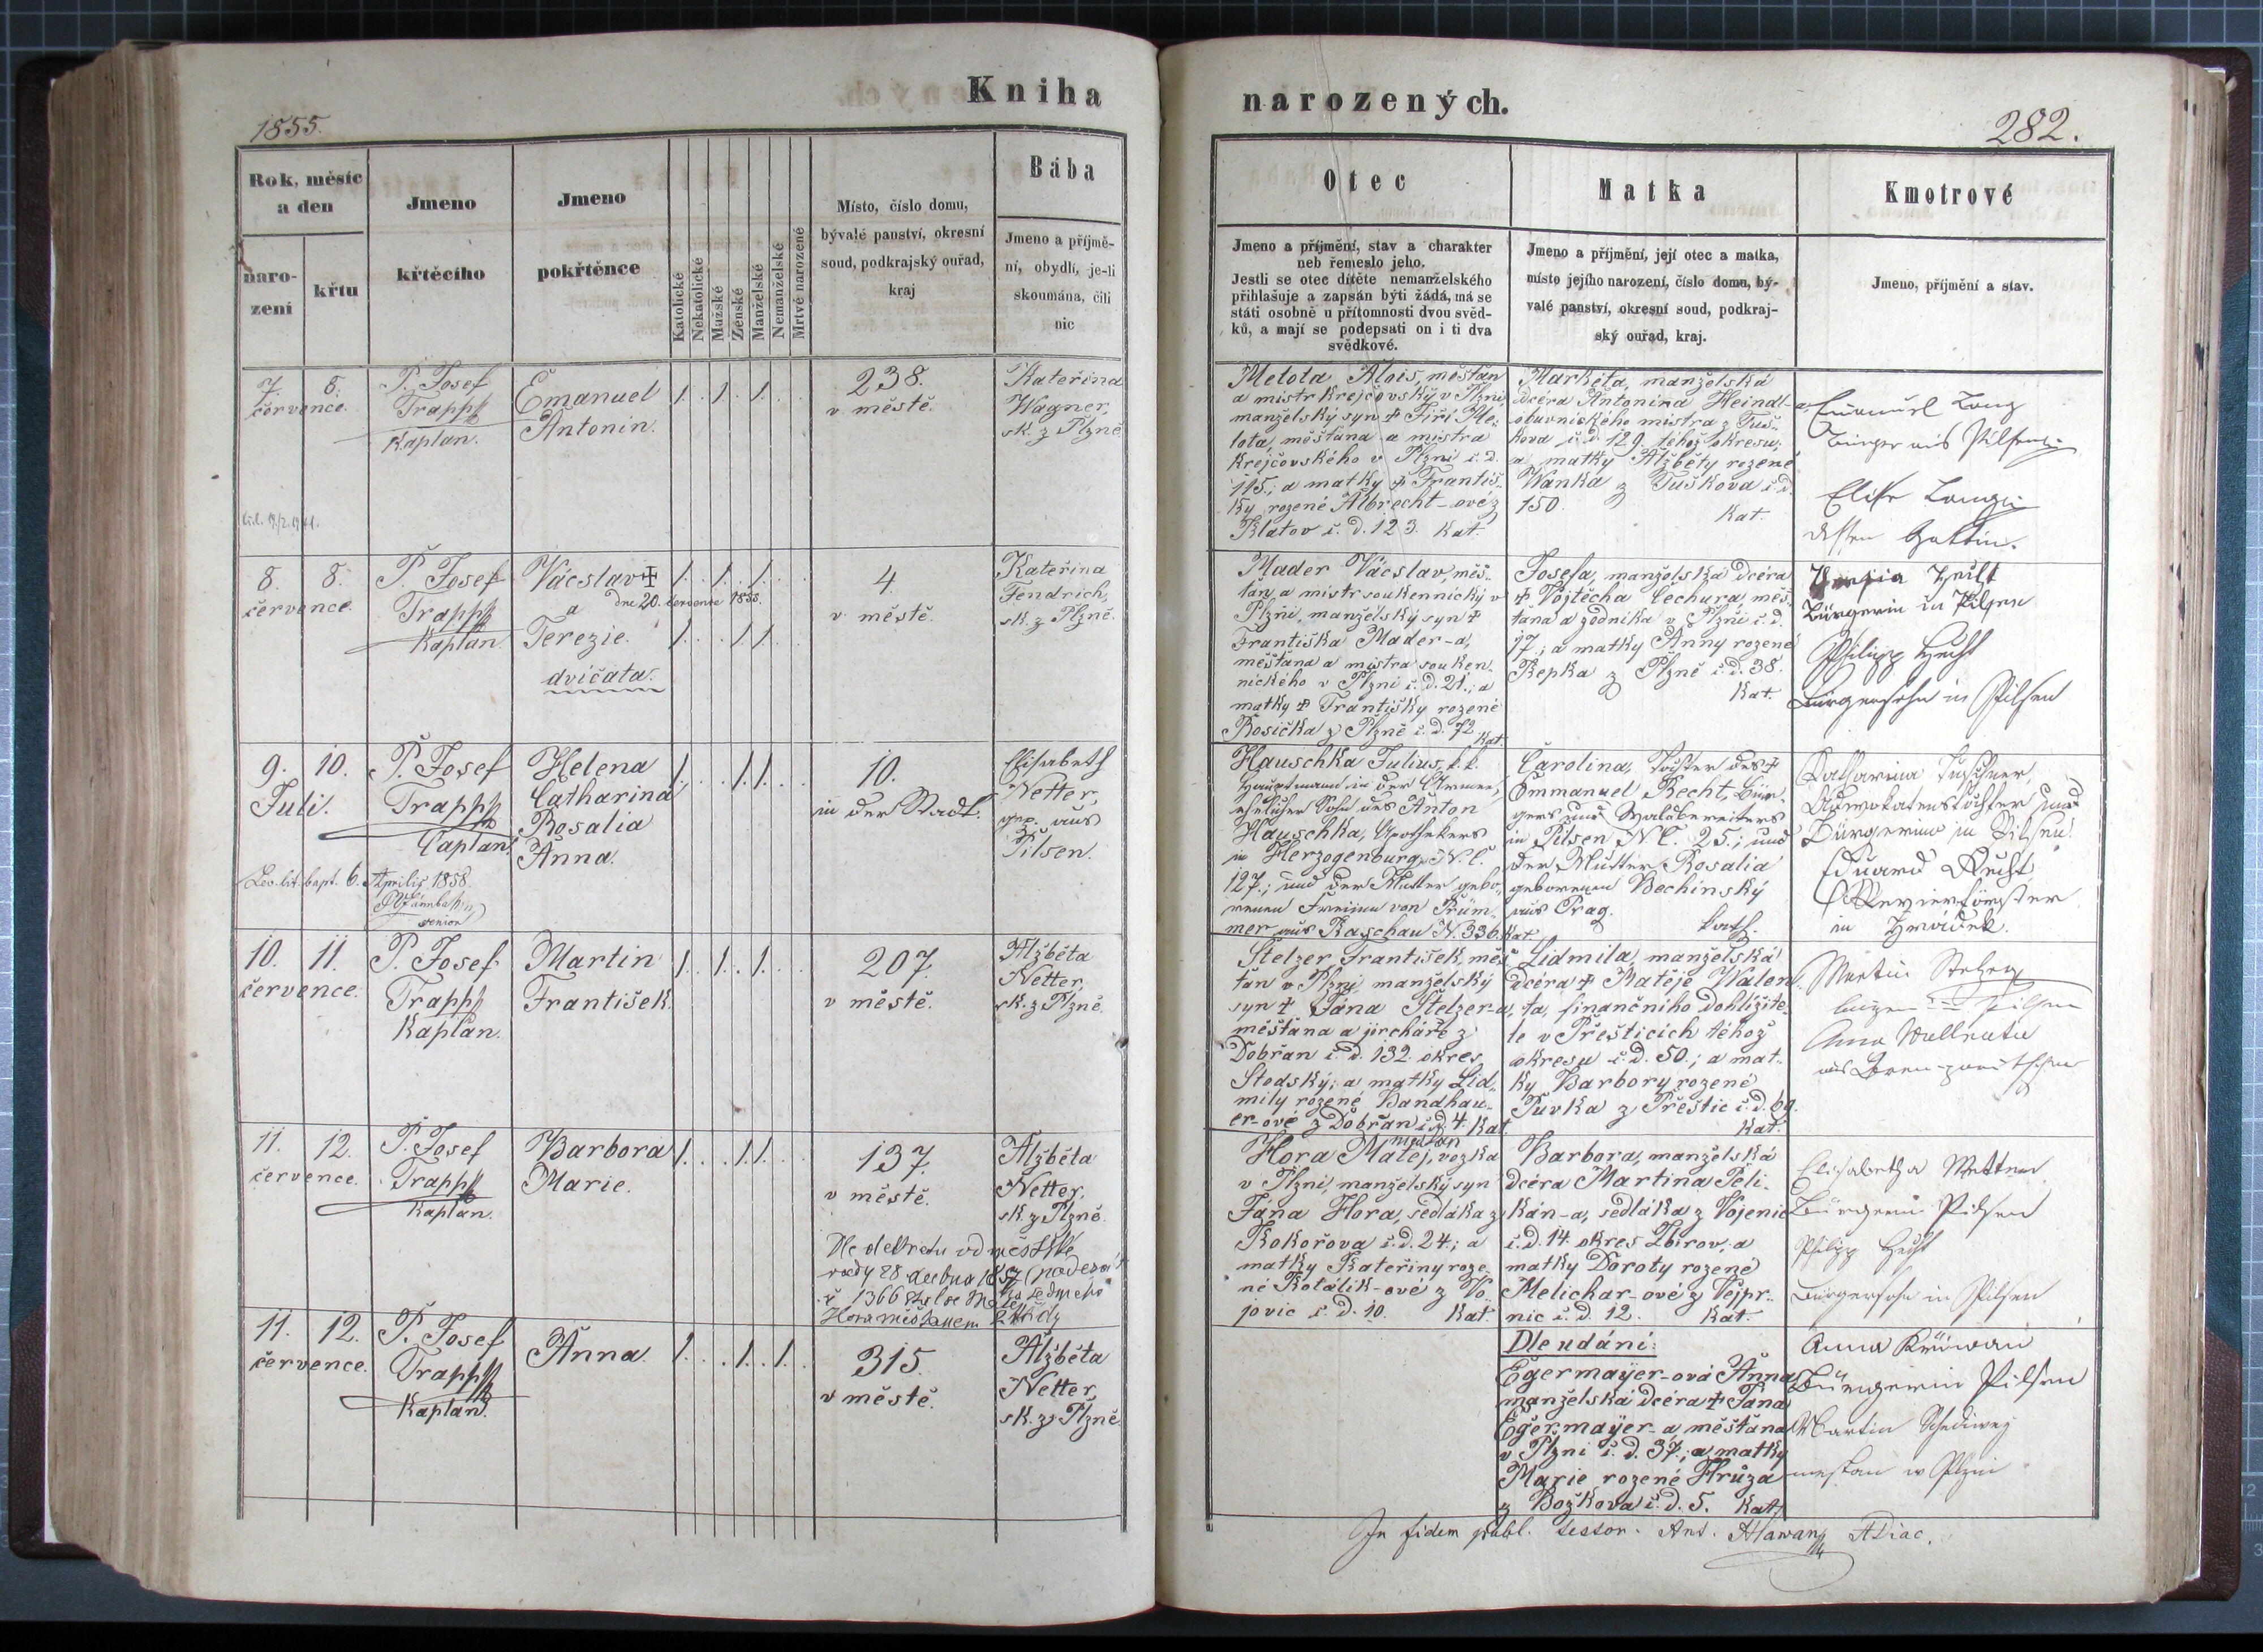 Kniha
1855.
Rok, měsíc
a den
naro-
zení
křtu
Jmeno
křtěcího
Jmeno
pokřtěnce
Katolické
Nekatolické
Mužské
Ženské
Manželské
Nemanželské
Mrtvě narozené
Místo, číslo domu,
bývalé panství, okresní
soud, podkrajský ouřad,
kraj
Bába
Jmeno a příjmě-
ní, obydlí, je-li
skoumána, čili
nic
7. 8.
července.
P. Josef
Trapp
Kaplan.
Emanuel
Antonín.
1. 1. 1.
238.
v městě.
Kateřina
Wagner,
sk. z Plzně
8. 8.
července.
P. Josef
Trapp
Kaplan
Vácslav ✝
dne 20. července 1855.
a
Terezie.
dvíčata.
1. 1. 1.
1. 1. 1.
4.
v městě.
Kateřina
Fendrich,
sk. z Plzně.
9. 10.
Juli.
P. Josef
Trapp
Caplan
Helena
Catharina
Rosalia
Anna.
1. 1. 1.
10.
in der Stadt.
Elisabeth
Netter,
gep. aus
Pilsen.
bapt. 6. Aprilis 1858.
senior
10. 11.
července.
P. Josef
Trapp
Kaplan.
Martin
František.
1. 1. 1.
207.
v městě.
Alžběta
Netter,
sk. z Plzně.
11. 12.
července.
P. Josef
Trapp
Kaplan.
Barbora
Marie.
1. 1. 1.
137.
v městě.
Alžběta
Netter,
sk. z Plzně.
Dle dekretu od městské
rady 28 dubna 1857
č 1366
Hora měšťanem
11. 12.
července.
P. Josef
Trapp
Kaplan.
Anna.
1. 1. 1.
315.
v městě.
Alžběta
Netter,
sk. z Plzně
narozených.
282.
Otec
Jmeno a příjmění, stav a charakter
neb řemeslo jeho.
Jestli se otec dítěte nemanželského
přihlašuje a zapsán býti žádá, má se
státi osobně u přítomnosti dvou svěd-
ků, a mají se podepsati on i ti dva
svědkové.
Matka
Jmeno a příjmění, její otec a matka,
místo jejího narození, číslo domu, bý-
valé panství, okresní soud, podkraj-
ský ouřad, kraj.
Kmotrové
Jmeno, příjmění a stav.
Metota Alois, měšťan
a mistr krejčovský v Plzni,
manželský syn ✝ Jiří Me-
tota, měšťana a mistra
krejčovského v Plzni č. d.
115.; a matky ✝ Františ-
ky rozené Albrecht-ové z
Klatov č. d. 123. Kat.
Markéta, manželská
dcéra Antonína Heindl-a,
obuvnického mistra z Tuš-
kova č. d. 129. téhož okresu;
a matky Alžběty rozené
Wanka z Tuškova č. d.
150. Kat.
Emanuel Lang
Bürger aus Pilsen
Elise Lang
dessen Gattin.
Mader Vácslav, měš-
ťan a mistr soukennický v
Plzni, manželský syn ✝
Františka Mader-a,
měšťana a mistra souken-
nického v Plzni č. d. 21.; a
matky ✝ Františky rozené
Rosička z Plzně č. d. 72. Kat.
Josefa, manželská dcéra
✝ Vojtěcha Čechura, měš-
ťana a zedníka v Plzni č. d.
17.; a matky Anny rozené
Řepka z Plzně č. d. 38.
Kat.
Hecht
Bürgerin in Pilsen
Philipp Hecht
Bürgersohn in Pilsen
Hauschka Julius, k. k.
Hauptmann in der Armee,
ehelicher Sohn des Anton
Hauschka, Apothekers
in Herzogenburg N. C.
127.; und der Mutter gebo-
renen Freiinn von Brüm-
mer aus Kaschau N. 336. Kat.
Carolina, Tochter des ✝
Emmanuel Recht, Bür-
gers und Waldbereiters
in Pilsen N. C. 25.; und
der Mutter Rosalia
geborenen Bechinský
aus Prag. Kath.
Katharina Tuschner,
Advokatenstochter und
Bürgerinn in Pilsen.
Eduard Recht,
Revierförster
in Hradek.
Stelzer František, měš-
ťan v Plzni, manželský
syn ✝ Jana Stelzer-a,
měšťana a jircháře z
Dobřan č. d. 132. okres
Stodský; a matky Lid-
mily rozené Bandhau-
er-ové z Dobřan č. d. 4. Kat.
Lidmila, manželská
dcéra ✝ Matěje Walen-
ta, finančního dohlížite-
le v Přešticích téhož
okresu č. d. 50.; a mat-
ky Barbory rozené
Tuvka z Přeštic č. d. 69.
Kat.
Martin Stelzer
Pilsen
Anna
aus
Hora Matěj, vozka
měšťan
v Plzni, manželský syn
Jana Hora, sedláka z
Kokořova č. d. 24.; a
matky Kateřiny roze-
né Kotálik-ové z Vo-
jovic č. d. 10. Kat.
Barbora, manželská
dcéra Martina Peli-
kán-a, sedláka z Vojenic
č. d. 14 okres Zbirov, a
matky Doroty rozené
Melichar-ové z Vejpr-
nic č. d. 12. Kat.
Elisabetha Netter
Bürgerin Pilsen
Philipp Hecht
Bürgersohn in Pilsen
Dle udání:
Egermayer-ová Anna
manželská dcéra ✝ Jana
Egermayer-a, měšťana
v Plzni č. d. 37.; a matky
Marie rozené Hrůza
z Božkova č. d. 5. Kat.
Anna
Bürgerin Pilsen
Martin Schediwy
mesťan w Plzni
In fidem publ. testor. Ant. Hawan ADiac.